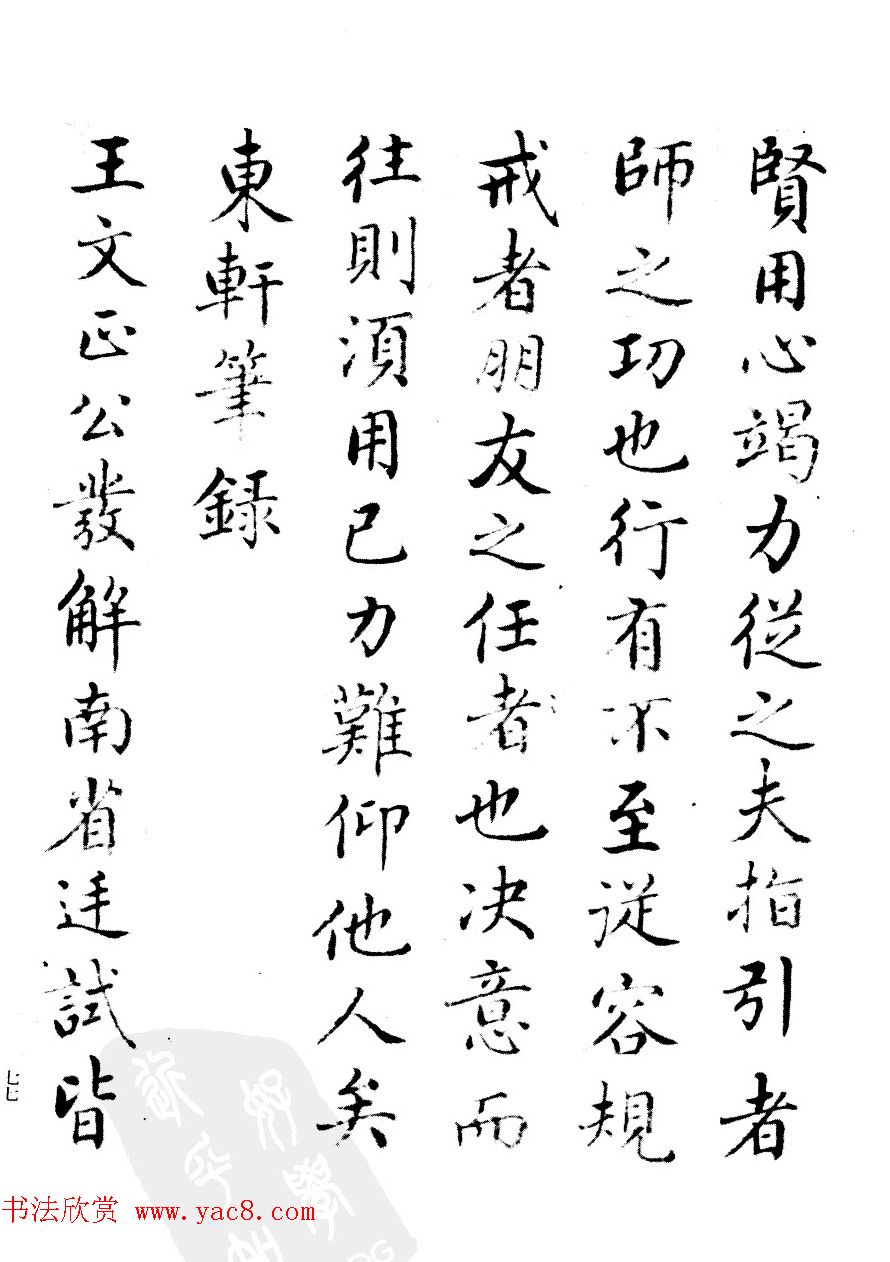 賢用心竭力從之夫指引者
師之功也行有不至從容規
戒者朋友之任者也决意而
往則須用己力難仰他人矣
東軒筆録
王文正公發解南省廷試皆
七七
书法欣赏 www.yac8.com